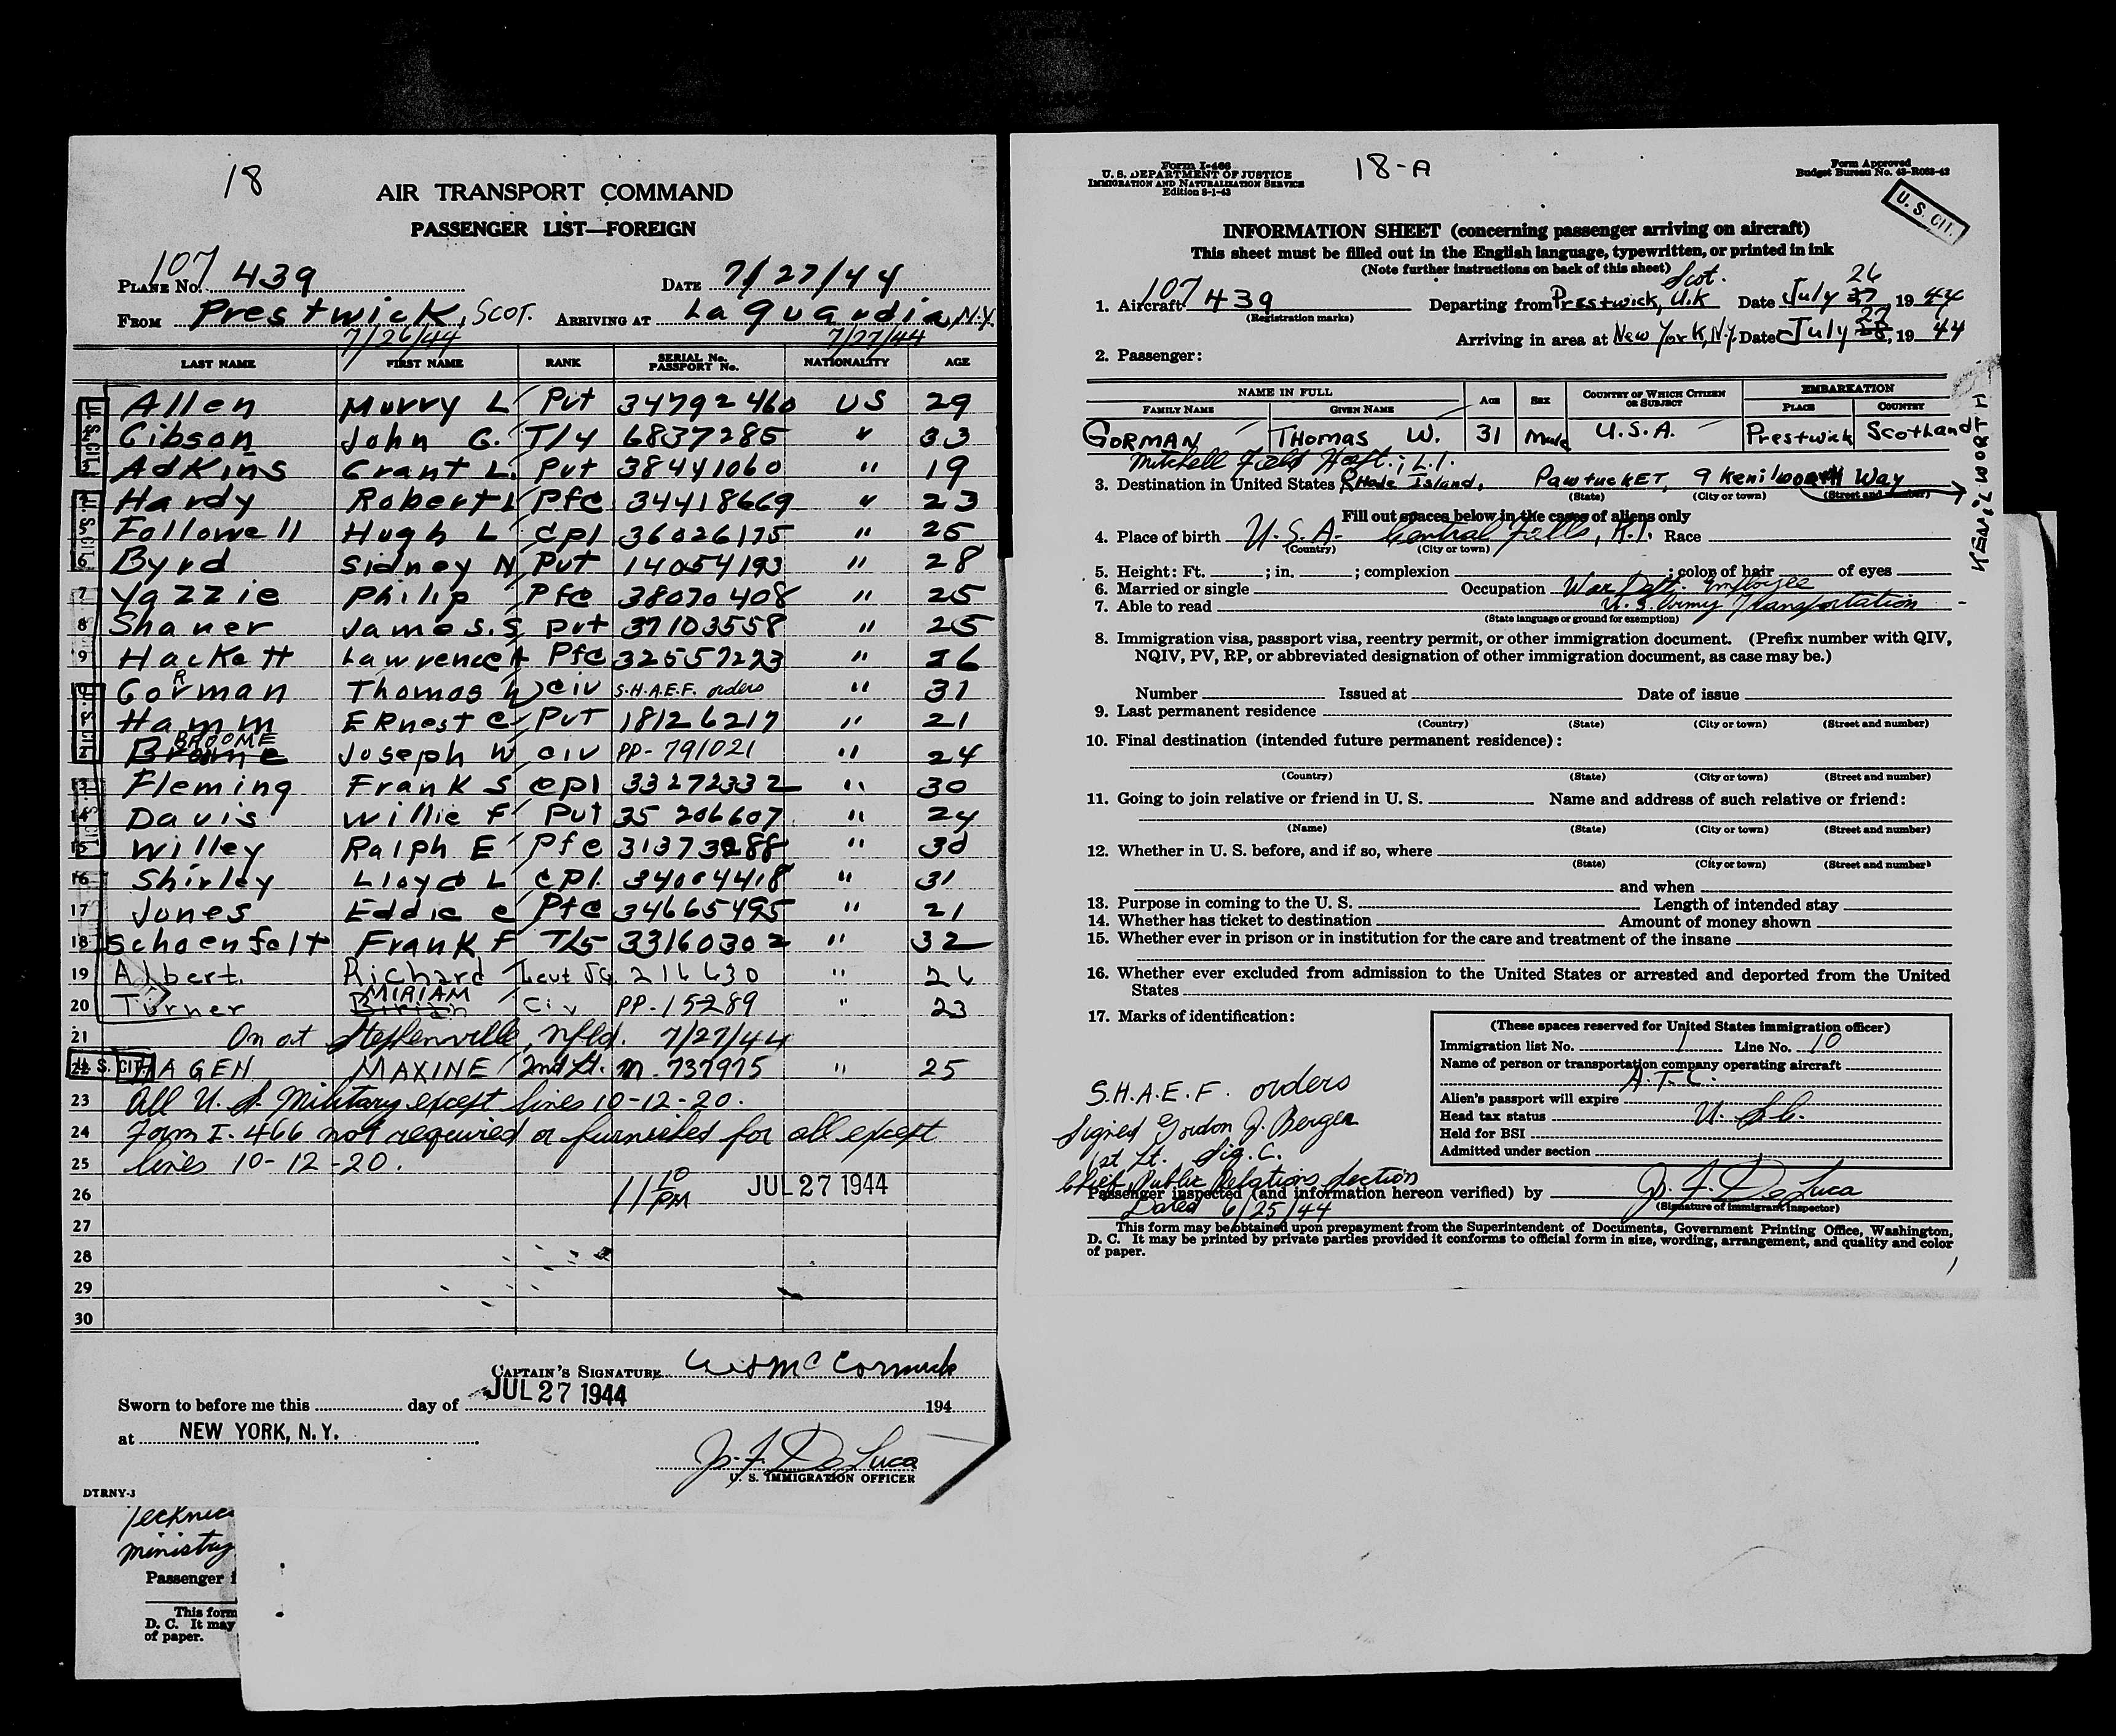 18
AIR TRANSPORT COMMAND
PASSENGER LIST—FOREIGN
PLANE No. 107 439 DATE 7/27/44
FROM Prestwick, SCOT. ARRIVING AT La Guardia, N.Y.
7/26/44 7/27/44
LAST NAME FIRST NAME RANK SERIAL No. PASSPORT No. NATIONALITY AGE
Allen Murry L Pvt 34792460 US 29
Gibson John G. T/4 6837285 " 33
Adkins Grant L. Pvt 38441060 " 19
Hardy Robert L Pfc 34418669 " 23
Followell Hugh L Cpl 36026175 " 25
6 Byrd Sidney N Pvt 14054193 " 28
7 Yazzie Philip Pfc 38070408 " 25
8 Shaner James S. Pvt 37103558 " 25
9 Hackett Lawrence A Pfc 32557223 " 26
Gorman Thomas W Civ S.H.A.E.F. orders " 31
Hamm Ernest C Pvt 18126217 " 21
BROOME Joseph W civ PP-791021 " 24
13 Fleming Frank S cpl 33272332 " 30
14 Davis Willie F Pvt 35 206607 " 24
15 Willey Ralph E Pfc 31373288 " 30
16 Shirley Lloyd L cpl. 34004418 " 31
17 Jones Eddie C Pfc 34665495 " 21
18 Schoenfelt Frank F T/5 33160302 " 32
19 Albert Richard Lieut J.G. 216630 " 26
20 Turner MIRIAM Civ PP-15289 " 23
21 On at Stephenville, Nfld. 7/27/44
22 HAGEN MAXINE 2nd Lt. N-737975 " 25
U. S. CIT.
23 All U. S. Military except lines 10-12-20.
24 Form I-466 not required or furnished for all except
25 lines 10-12-20.
26 11 10 PM JUL 27 1944
27
28
29
30
CAPTAIN'S SIGNATURE McCormick
Sworn to before me this day of JUL 27 1944 194
at NEW YORK, N.Y.
J. F. De Luca
U. S. IMMIGRATION OFFICER
DTRNY-3
Technic
Ministry
Passenger i
This form
D. C. It may
of paper.
Form I-466
U. S. DEPARTMENT OF JUSTICE
IMMIGRATION AND NATURALIZATION SERVICE
Edition 8-1-43
18-A
Form Approved
Budget Bureau No. 43-R083-43
U. S. CIT.
INFORMATION SHEET (concerning passenger arriving on aircraft)
This sheet must be filled out in the English language, typewritten, or printed in ink
(Note further instructions on back of this sheet)
1. Aircraft 107 439 Departing from Prestwick, U.K Scot. Date July 26, 1944
(Registration marks)
Arriving in area at New York, N.Y. Date July 27, 1944
2. Passenger:
NAME IN FULL AGE SEX COUNTRY OF WHICH CITIZEN OR SUBJECT EMBARKATION
FAMILY NAME GIVEN NAME PLACE COUNTRY
GORMAN THOMAS W. 31 Male U.S.A. Prestwick Scotland
Mitchell Field Hosp., L.I.
3. Destination in United States Rhode Island, Pawtucket, 9 Kenilworth Way
(State) (City or town) (Street and number)
Fill out spaces below in the cases of aliens only
4. Place of birth U.S.A. Central Falls, R.I. Race
(Country) (City or town)
5. Height: Ft. ; in. ; complexion ; color of hair of eyes
6. Married or single Occupation War Dept. Employee
7. Able to read U.S. Army Transportation
(State language or ground for exemption)
8. Immigration visa, passport visa, reentry permit, or other immigration document. (Prefix number with QIV,
NQIV, PV, RP, or abbreviated designation of other immigration document, as case may be.)
Number Issued at Date of issue
9. Last permanent residence
(Country) (State) (City or town) (Street and number)
10. Final destination (intended future permanent residence):
(Country) (State) (City or town) (Street and number)
11. Going to join relative or friend in U. S. Name and address of such relative or friend:
(Name) (State) (City or town) (Street and number)
12. Whether in U. S. before, and if so, where
(State) (City or town) (Street and number)
and when
13. Purpose in coming to the U. S. Length of intended stay
14. Whether has ticket to destination Amount of money shown
15. Whether ever in prison or in institution for the care and treatment of the insane
16. Whether ever excluded from admission to the United States or arrested and deported from the United
States
17. Marks of identification:
(These spaces reserved for United States immigration officer)
Immigration list No. 1 Line No. 10
Name of person or transportation company operating aircraft
A.T.C.
Alien's passport will expire
Head tax status U.S.C.
Held for BSI
Admitted under section
S.H.A.E.F. orders
Signed Gordon J. Berger
1st Lt. Sig. C.
Chief, Public Relations Section
Dated 6/25/44
Passenger inspected (and information hereon verified) by J. F. De Luca
(Signature of immigrant inspector)
This form may be obtained upon prepayment from the Superintendent of Documents, Government Printing Office, Washington,
D. C. It may be printed by private parties provided it conforms to official form in size, wording, arrangement, and quality and color
of paper.